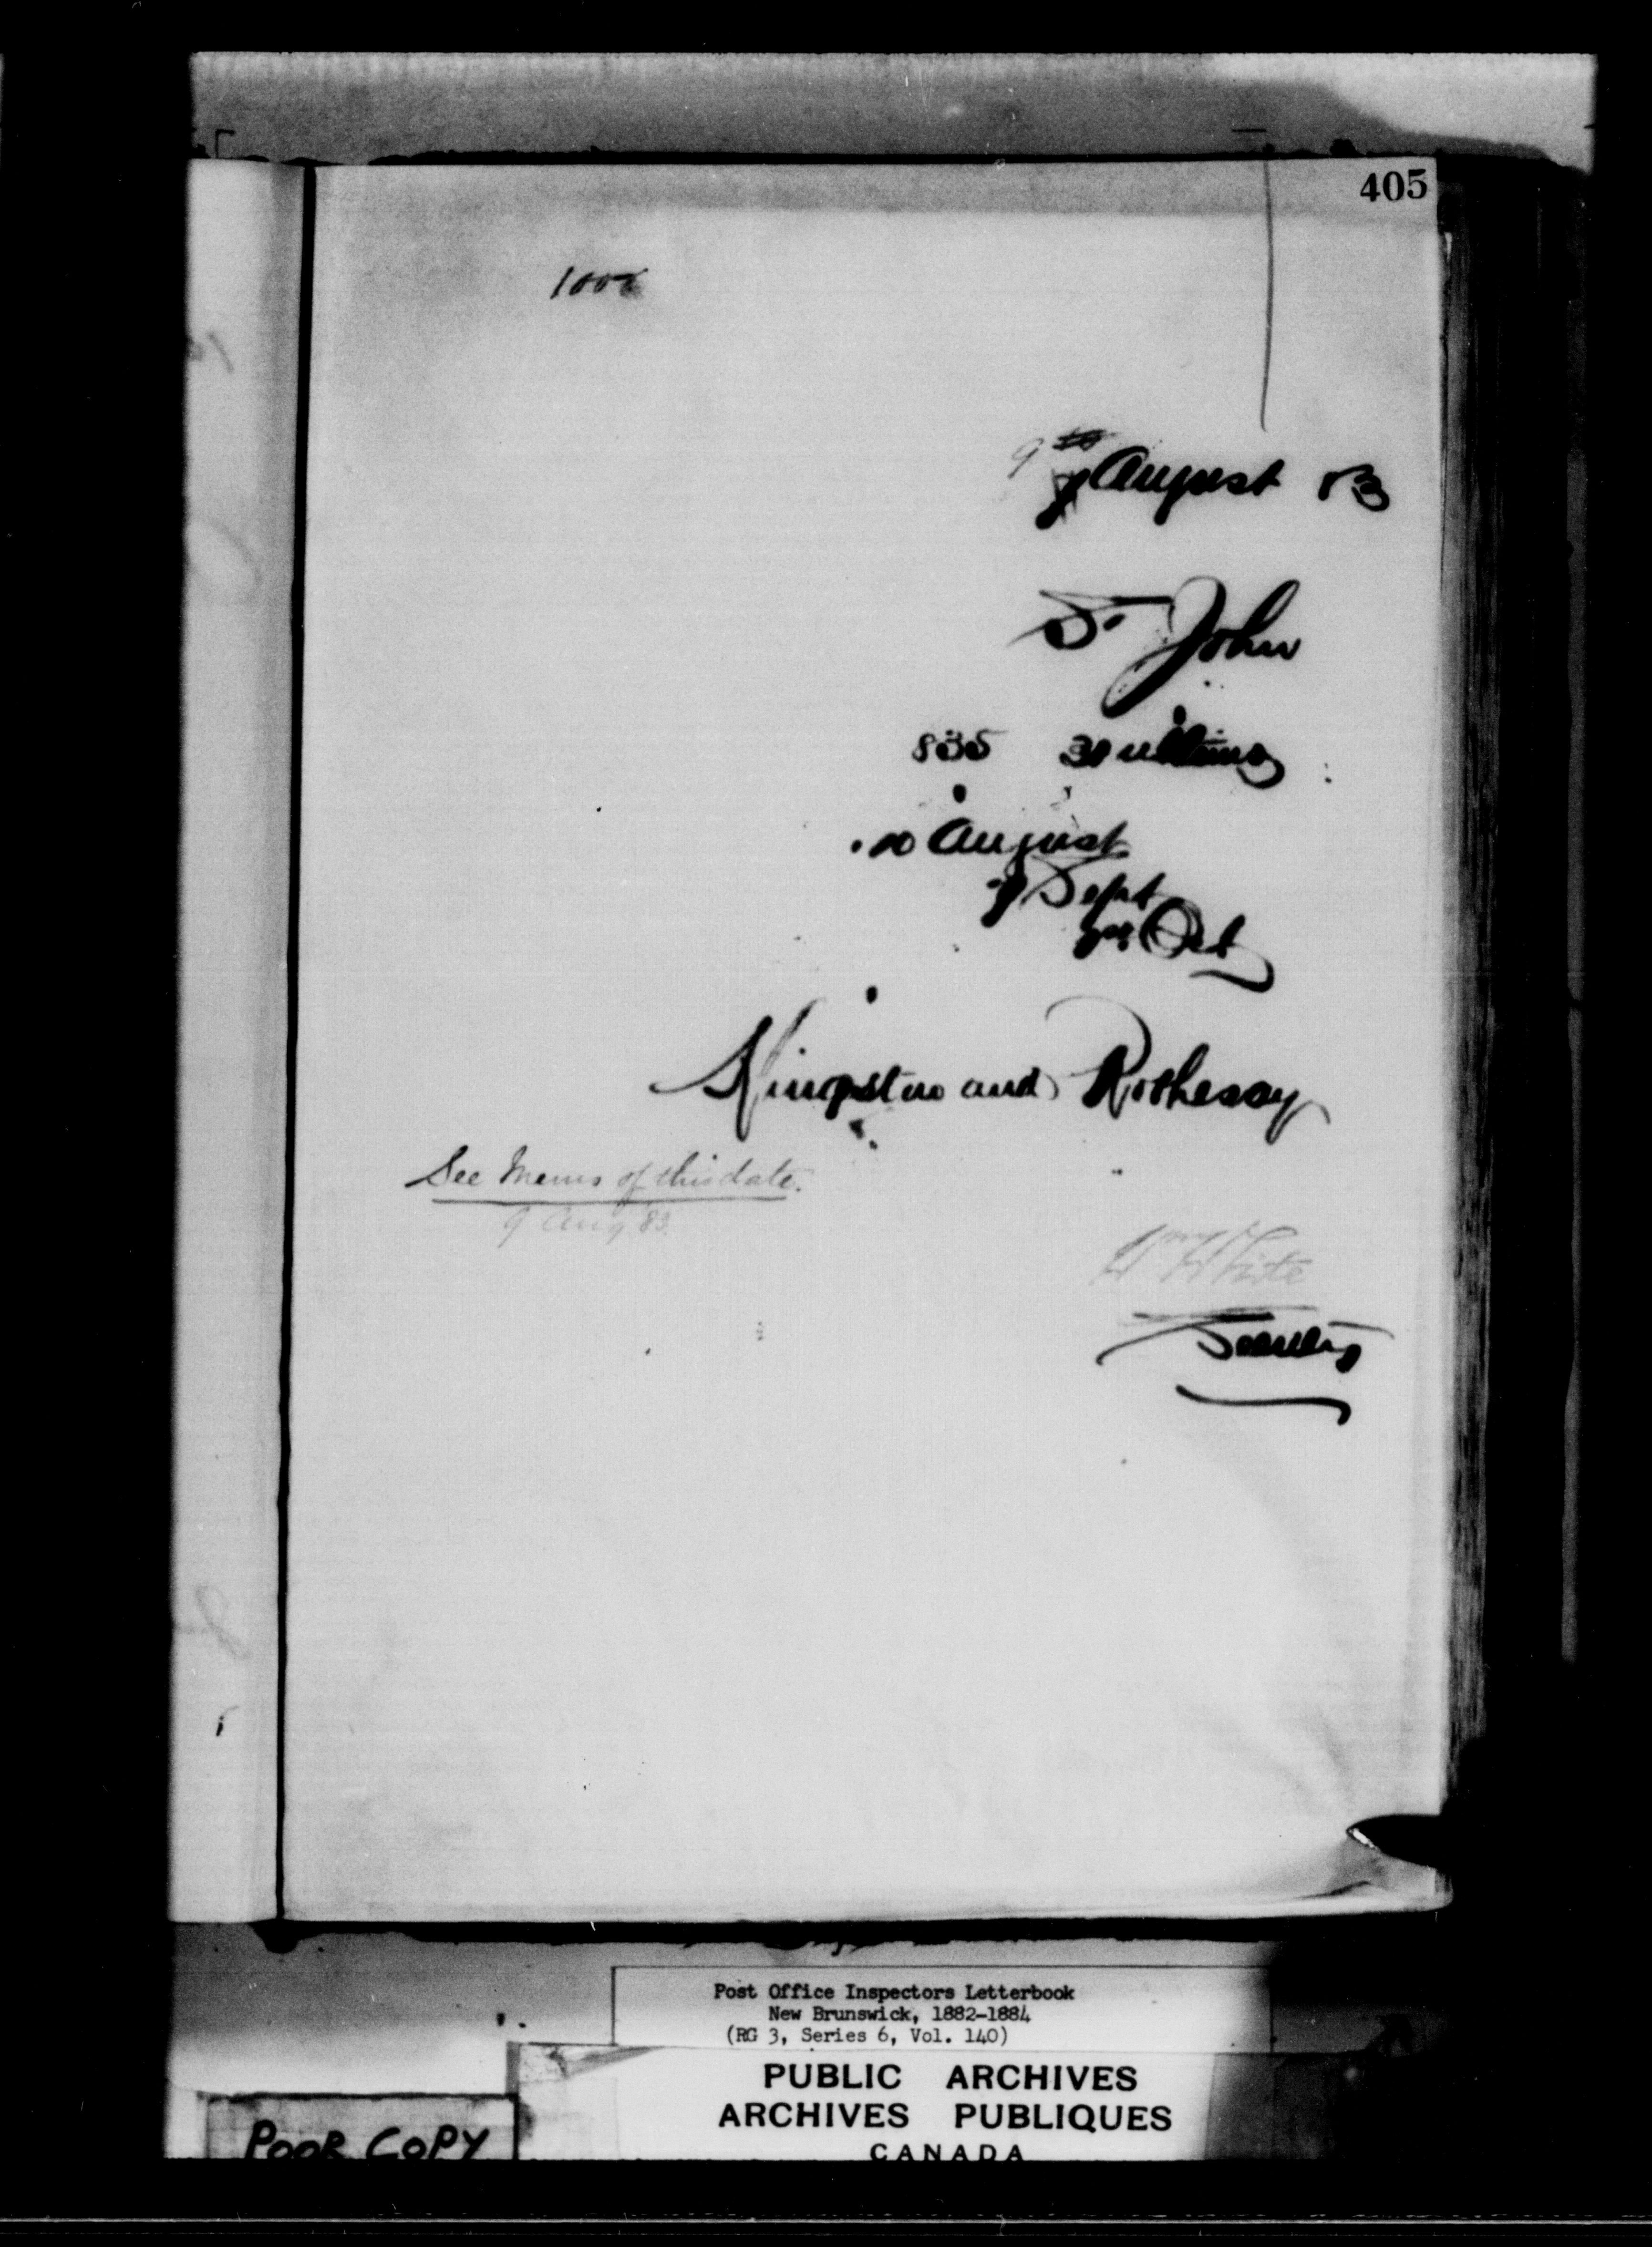 405
1002
9th August 83
St John
835 31 ultimo
10 August
7 Sept
Oct
Kingston and Rothesay
See Memo of this date.
9 Aug 83
White
Secretary
Post Office Inspectors Letterbook
New Brunswick, 1882-1884
(RG 3, Series 6, Vol. 140)
PUBLIC ARCHIVES
ARCHIVES PUBLIQUES
CANADA
POOR COPY